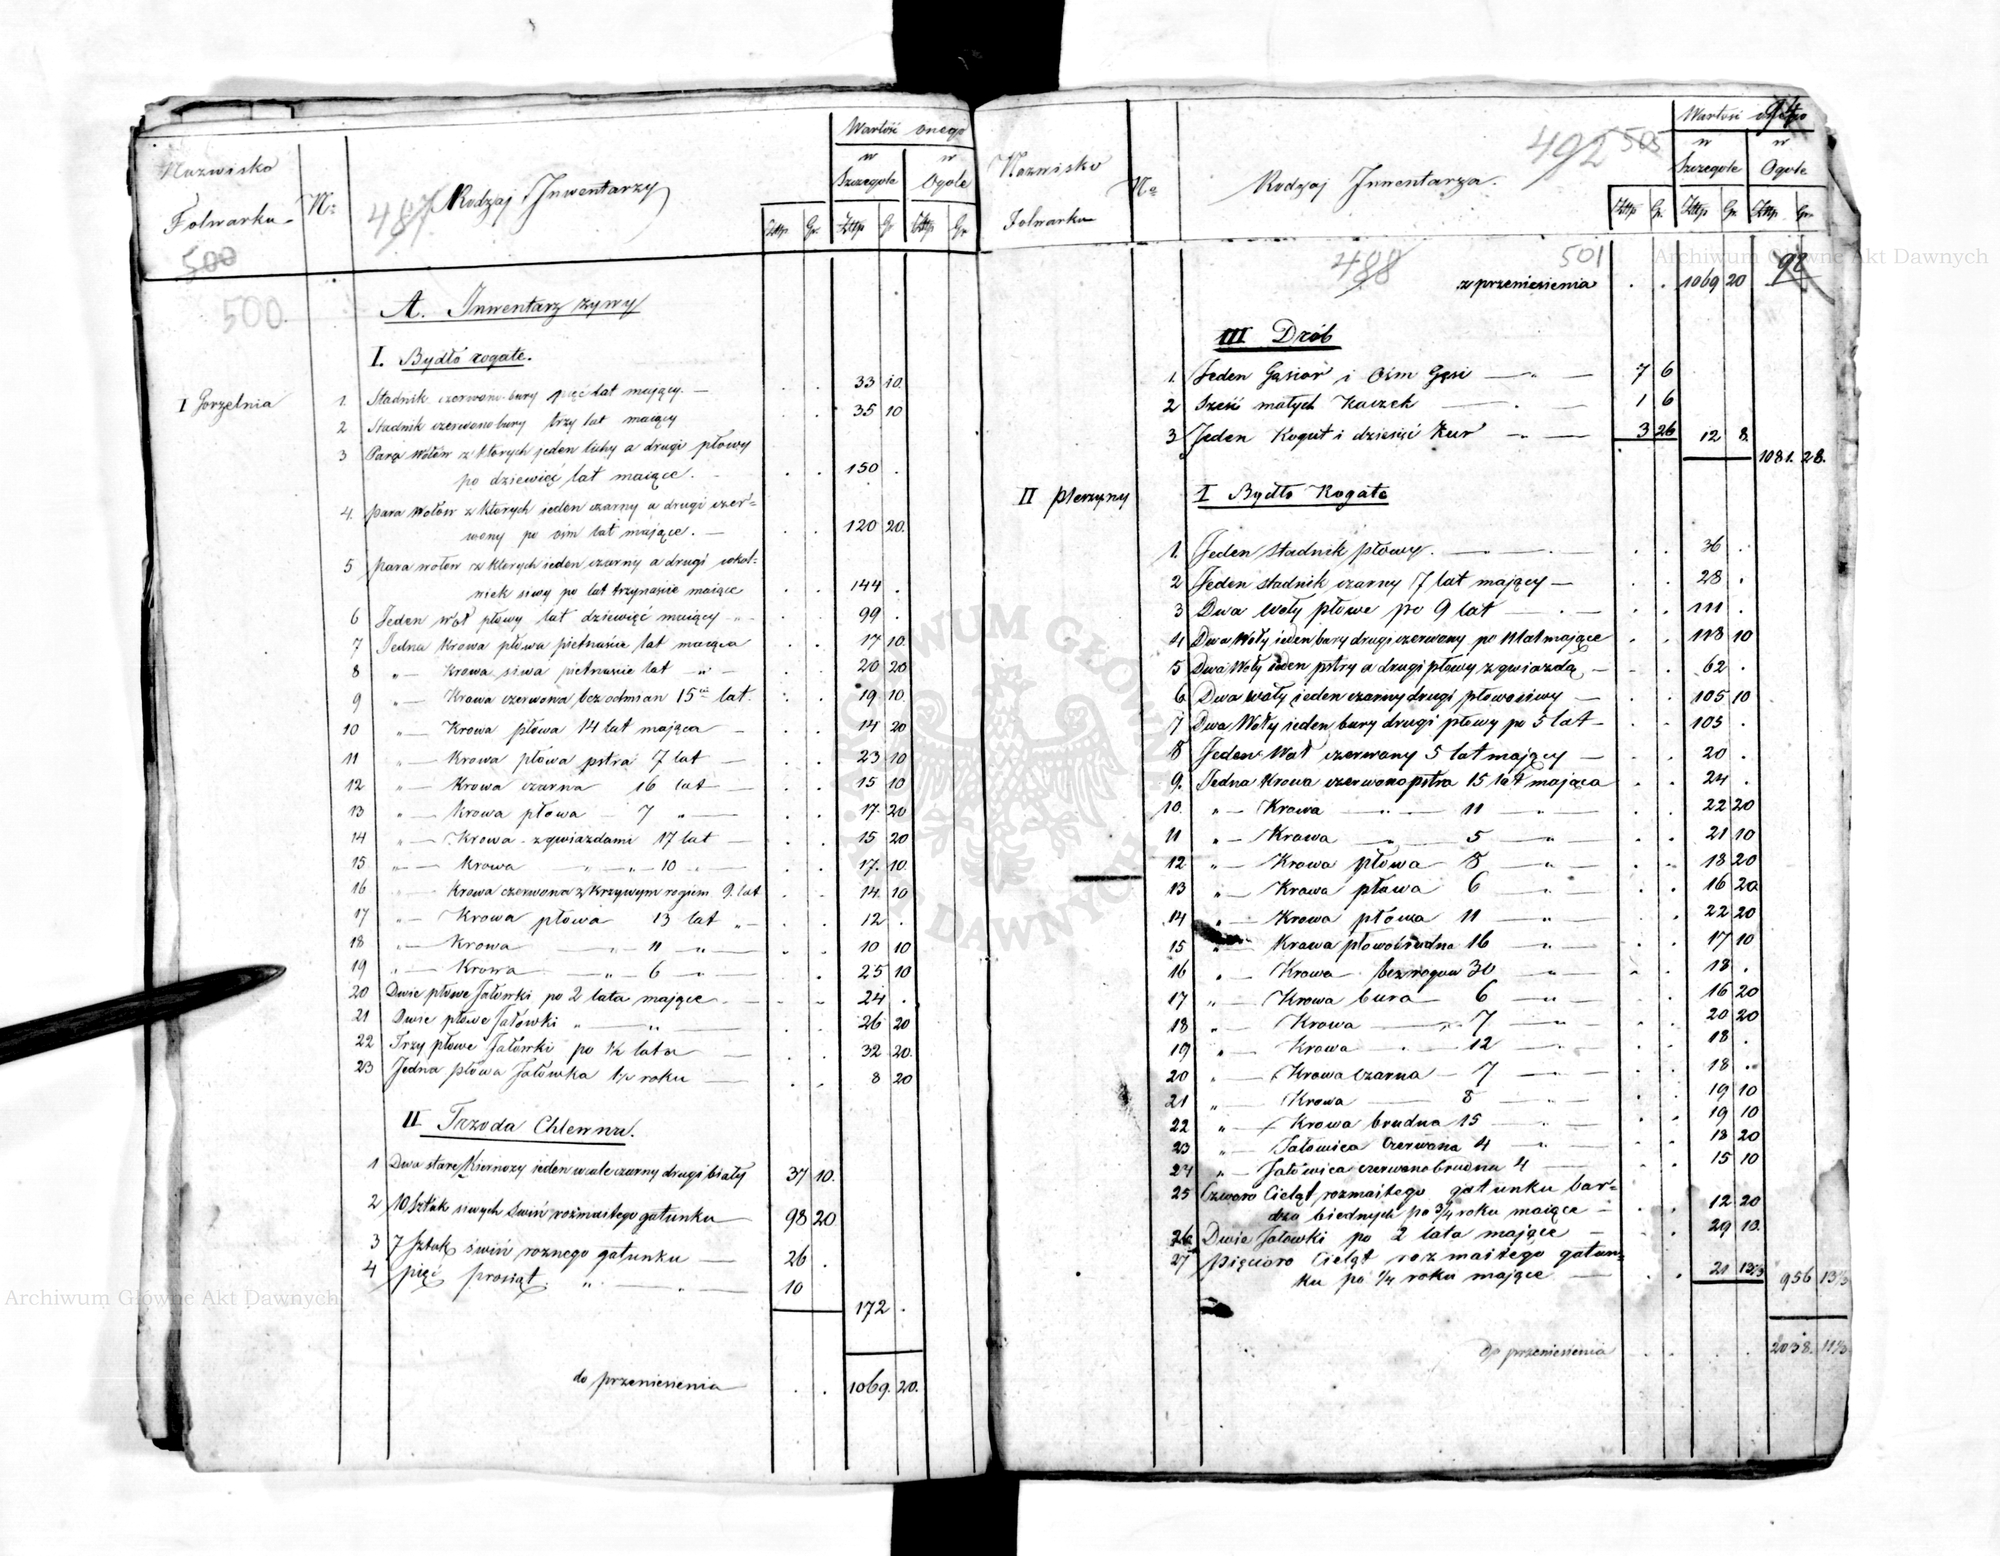 Nazwisko Folwarku
N=
Rodzaj Inwentarzy
Wartość onego
w Szczegole
w Ogole
Złtp Gr. Złtp Gr Złtp Gr
487.
500
500
A. Inwentarz żywy
I. Bydło rogate.
I Gorzelnia
1. Stadnik czerwono-bury pięć lat mający. — 33 10.
2 Stadnik czerwonobury trzy lat maiący 35 10
3 Para Wołów z których jeden lichy a drugi płowy
po dziewięć lat maiące. 150 .
4. para Wołów z których ieden czarny a drugi czer=
wony po ośm lat mające. — 120 20.
5 para wołów z których ieden czarny a drugi wkol=
niek siwy po lat trzynaście maiące 144 .
6 Jeden wół płowy lat dziewięć maiący 99 .
7 Jedna Krowa płowa pietnaście lat maiąca 17 10.
8 " — Krowa siwa pietnaście lat — " — 20 20
9 " — Krowa czerwona bez odmian 15 lat. 19 10.
10 " — Krowa płowa 14 lat mająca — 14 20
11 " — Krowa płowa pstra 7 lat — 23 10
12 " — Krowa czarna 16 lat — 15 10
13 " — Krowa płowa — 7 " — 17. 20
14 " — Krowa z gwiazdami 17 lat — 15 20
15 " — Krowa " — " — 10 — " 17. 10.
16 " — Krowa czerwona z krzywym rogiem 9. lat 14. 10
17 " — Krowa płowa 13 lat " — 12 .
18 " — Krowa — " — 11 — " — 10 10
19 " — Krowa — " — 6 — " — 25 10
20 Dwie płowe Jałówki po 2 lata mające . — 24 .
21 Dwie płowe Jałówki " — " — 26 20
22 Trzy płowe Jałówki po 1½ lata — 32 20.
23 Jedna płowa Jałówka 1½ roku — 8 20
II Trzoda Chlewna.
1 Dwa stare Kiernozy ieden wcale czarny drugi biały 37 10.
2 10 Sztuk siwych świń rozmaitego gatunku — 98 20
3 7 Sztuk świń roznego gatunku — 26 .
4 pięć prosiąt. " — " — 10
172 .
do przeniesienia — 1069. 20.
Nazwisko Folwarku
N=
Rodzaj Inwentarza.
492 505
94
Wartość onego
w Szczegole
w Ogole
Złtp Gr. Złtp Gr Złtp Gr.
488
501
92
z przeniesienia . . 1069 20
III Drób
1. Jeden Gąsior i Ośm Gęsi — " — 7 6
2 Sześć małych Kaczek — . — 1 6
3 Jeden Kogut i dziesięć Kur — " — 3 26 12 8.
1081. 28.
II Pierzyny
I Bydło Rogate
1. Jeden Stadnik płowy. — . — 36 .
2 Jeden stadnik czarny 7 lat mający — 28 .
3 Dwa woły płowe po 9 lat — . — 111 .
4 Dwa Woły ieden bury drugi czerwony po 11 lat mające 118 10
5 Dwa Woły ieden pstry a drugi płowy z gwiazdą — 62 .
6 Dwa woły ieden czarny drugi płowosiwy — 105 10
7 Dwa Woły ieden bury drugi płowy po 5 lat — 105 .
8 Jeden Woł czerwony 5 lat mający — 20 .
9. Jedna Krowa czerwono pstra 15 lat mająca 24 .
10. " — Krowa — " — 11 — " 22 20
11 " — Krowa — " — 5 — " 21 10
12 " — Krowa płowa — 8 — " 18 20
13 " — Krowa płowa 6 — " 16 20
14 " — Krowa płowa 11 — " 22 20
15 " Krowa płowobrudna 16 — " 17 10
16 " — Krowa bezroguw 30 — " 18 .
17 " — Krowa bura — 6 — " 16 20
18 " — Krowa — " — 7 — " 20 20
19 " — Krowa — " — 12 — " 18 .
20 " — Krowa Czarna — 7 — " 18 .
21 " — Krowa — 8 — " 19 10
22 " — Krowa brudna 15 — " 19 10
23 " — Jałowica Czerwona 4 — " 13 20
24 " — Jałowica czerwonobrudna 4 — 15 10
25 Czworo Cieląt rozmaitego gatunku bar=
dzo biednych po ¾ roku maiące — 12 20
26 Dwie Jałowki po 2 lata mające — 29 10.
27 pięcioro Cieląt rozmaitego gatun=
ku po ¼ roku mające — 21 13⅓ 956 13⅓
do przeniesienia 2038. 11⅓
Archiwum Główne Akt Dawnych
Archiwum Główne Akt Dawnych
ARCHIWUM GŁÓWNE AKT DAWNYCH